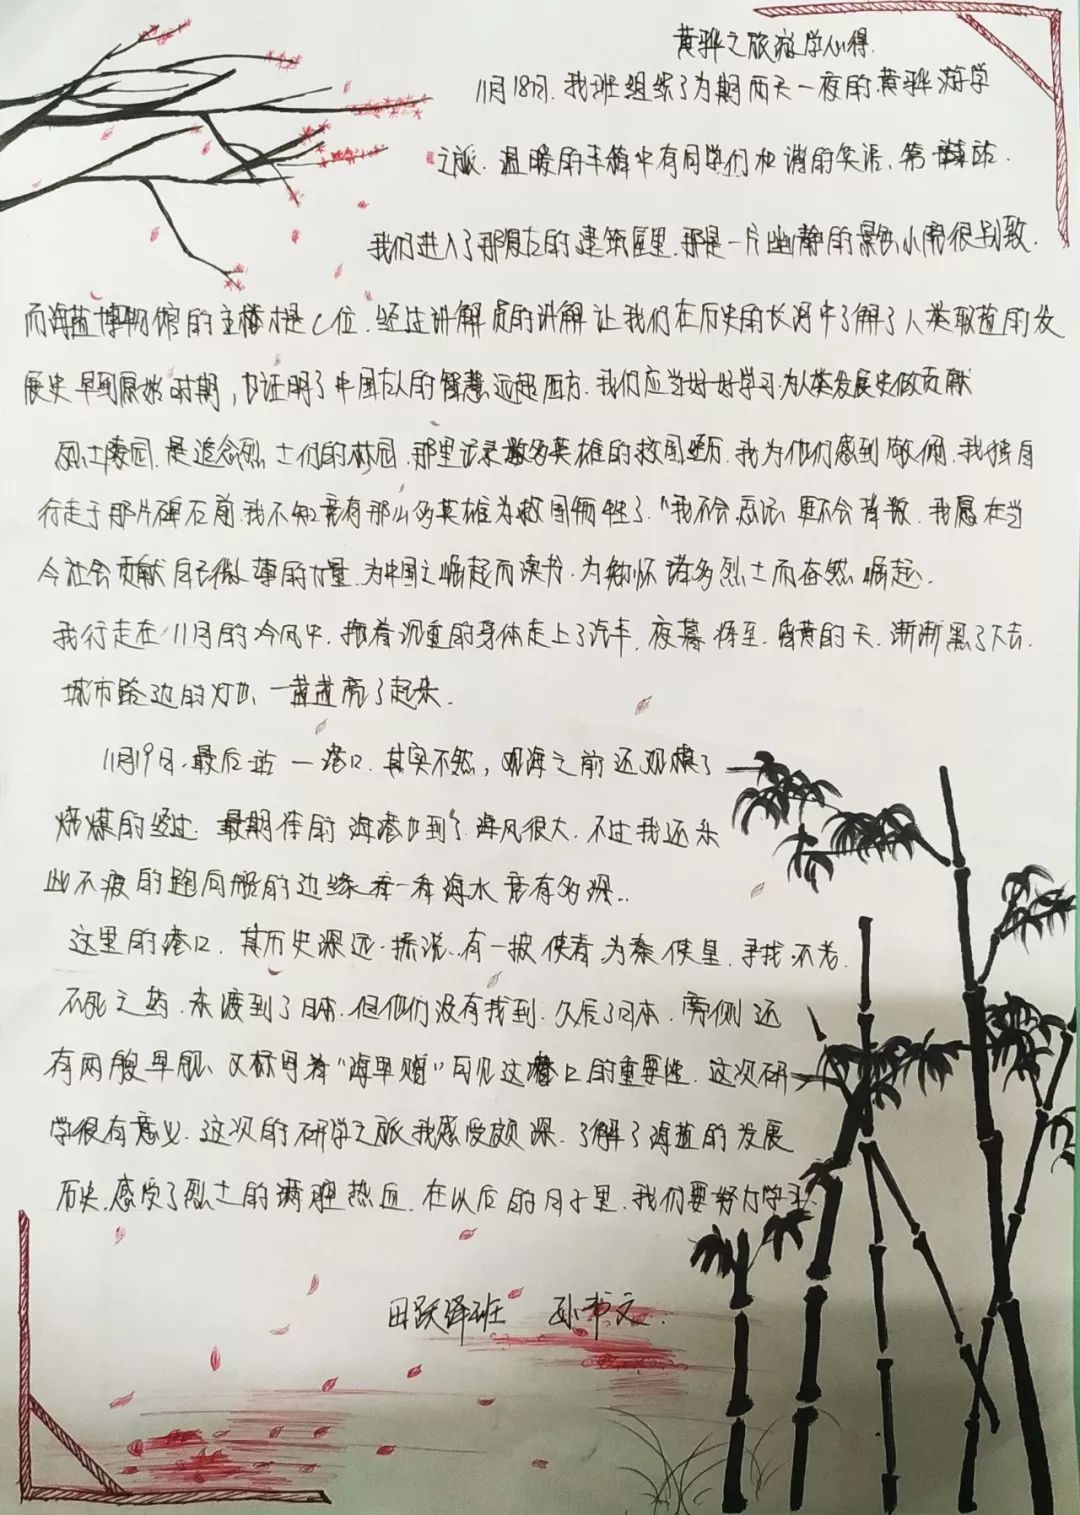 黄骅之旅游学心得.
11月18日.我班组织了为期两天一夜的.黄骅游学
之旅.温暖的车辆中有同学们和谐的笑语.第一站.
我们进入了那复古的建筑屋里.那是一片幽静的景色小旁很别致.
而海盐博物馆的主楼才是C位.经过讲解员的讲解让我们在历史的长河中了解了人类取盐的发
展史.早到原始时期,也证明了中国古人的智慧远超西方.我们应当好好学习.为人类发展史做贡献
烈士陵园.是追念烈士们的林园.那里记录数多英雄的救国经历.我为他们感到敬佩.我独自
行走于那片碑石前.我不知竟有那么多英雄为救国牺牲了.“我不会忘记更不会背叛.我愿在当
今社会贡献自己微薄的力量.为中国之崛起而读书.为缅怀诸多烈士而奋然崛起.
我行走在11月的冷风中.拖着沉重的身体走上了汽车.夜幕将至.昏黄的天.渐渐黑了下去.
城市路边的灯火一盏盏亮了起来.
11月19日.最后站一港口.其实不然,观海之前还观摩了
焙煤的经过.最期待的海港也到了.海风很大.不过我还乐
此不疲的跑向船的边缘看一看海水竟有多深..
这里的港口.其历史深远.据说.有一披使者为秦使皇.寻找.不老.
不死之药.东渡到了日本.但他们没有找到.久居了日本.旁侧还
有两艘旱船.又称号着“海旱鸥”可见这港口的重要性.这次研
学很有意义.这次的研学之旅我感受颇深.了解了海盐的发展
历史.感受了烈士的满腔热血.在以后的日子里.我们要努力学习.
田跃绎班 孙书文.